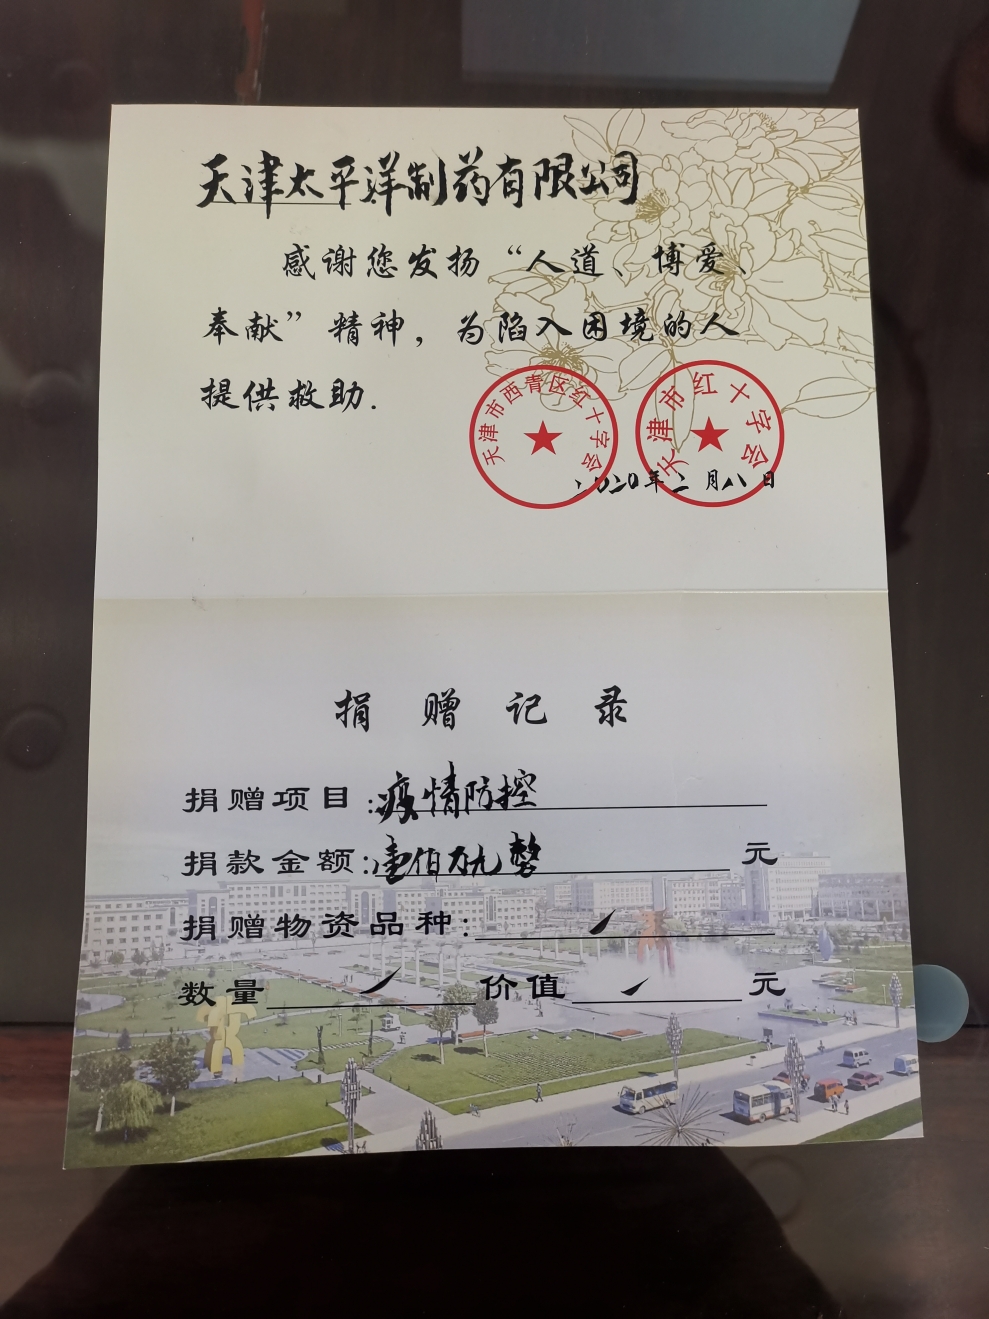 天津太平洋制药有限公司
感谢您发扬“人道、博爱、
奉献”精神，为陷入困境的人
提供救助.
天津市西青区红十字会
天津市红十字会
2020年二月八日
捐赠记录
捐赠项目:疫情防控
捐款金额:壹佰万元整 元
捐赠物资品种:
数量 价值 元